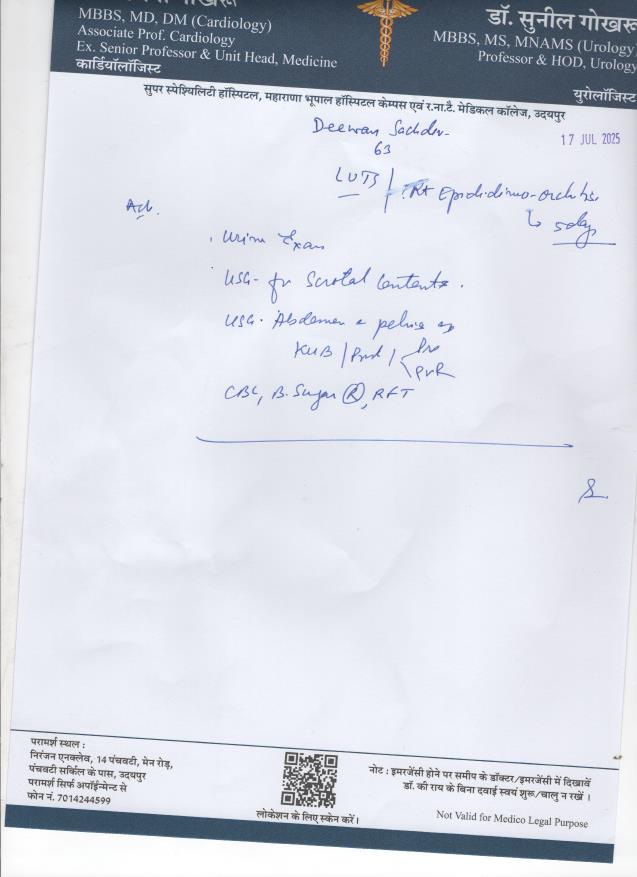 MBBS, MD, DM (Cardiology)
Associate Prof. Cardiology
Ex. Senior Professor & Unit Head, Medicine
कार्डियॉलॉजिस्ट
डॉ. सुनील गोखरू
MBBS, MS, MNAMS (Urology)
Professor & HOD, Urology
यूरोलॉजिस्ट
सुपर स्पेश्यिलिटी हॉस्पिटल, महाराणा भूपाल हॉस्पिटल केम्पस एवं र.ना.टै. मेडिकल कॉलेज, उदयपुर
17 JUL 2025
Deewan Sachdev
63
LUTS / Rt Epididimo-orchitis
5 days
Adv.
Urine Exam
USG- for Scrotal Contents.
USG. Abdomen & pelvis
KUB / Prost / Pre
PVR
CBC, B. Sugar (R), RFT
परामर्श स्थल :
निरंजन एनक्लेव, 14 पंचवटी, मेन रोड़,
पंचवटी सर्किल के पास, उदयपुर
परामर्श सिर्फ अपॉईन्मेन्ट से
फोन नं. 7014244599
लोकेशन के लिए स्केन करें।
नोट : इमरजेंसी होने पर समीप के डॉक्टर/इमरजेंसी में दिखावें
डॉ. की राय के बिना दवाई स्वयं शुरू/चालु न रखें ।
Not Valid for Medico Legal Purpose